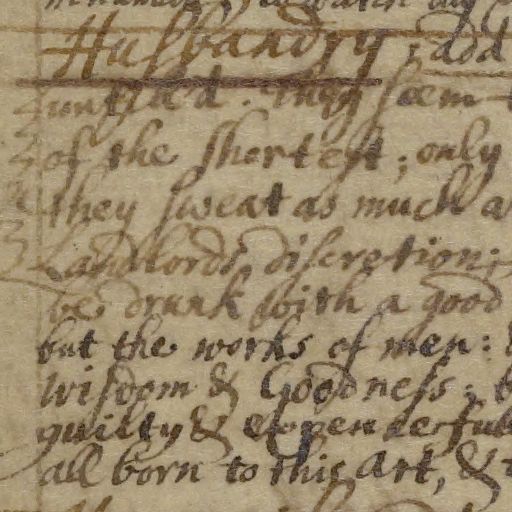 Husbandry; add
untill'd. They seem
of the shortest; only
they sweat as much a
Landlords discretion;
be drunk with a good
but the works of men:
Wisdom & Goodness; b
guilty &
all born to this Art, &